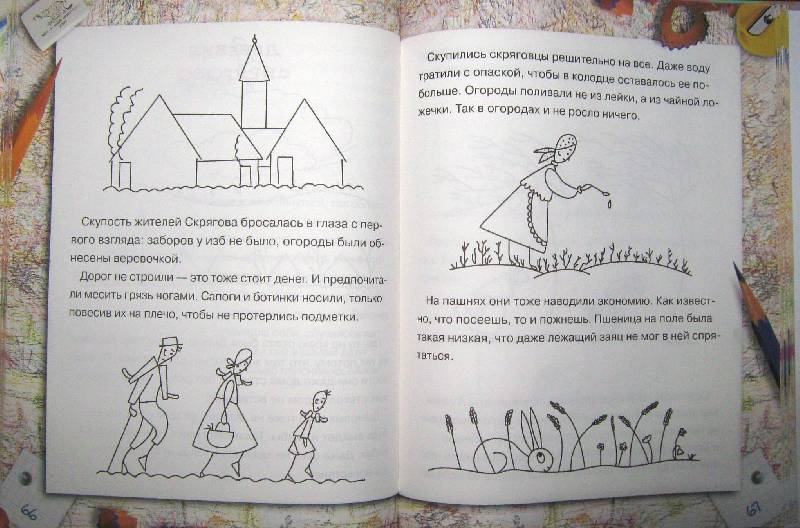 Скупость жителей Скрягова бросалась в глаза с пер-
вого взгляда: заборов у изб не было, огороды были об-
несены веровочкой.
Дорог не строили — это тоже стоит денег. И предпочита-
ли месить грязь ногами. Сапоги и ботинки носили, только
повесив их на плечо, чтобы не протерлись подметки.
66
Скупились скряговцы решительно на все. Даже воду
тратили с опаской, чтобы в колодце оставалось ее по-
больше. Огороды поливали не из лейки, а из чайной ло-
жечки. Так в огородах и не росло ничего.
На пашнях они тоже наводили экономию. Как извест-
но, что посеешь, то и пожнешь. Пшеница на поле была
такая низкая, что даже лежащий заяц не мог в ней спря-
таться.
67